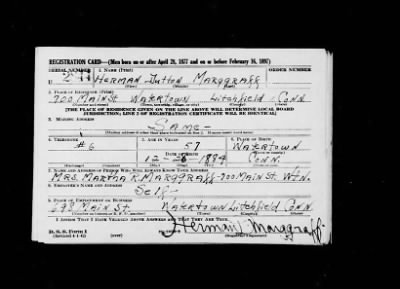 REGISTRATION CARD—(Men born on or after April 28, 1877 and on or before February 16, 1897)
SERIAL NUMBER 1. NAME (Print) ORDER NUMBER
HERMAN Dutton MARGGRAFF
(First) (Middle) (Last)
2. PLACE OF RESIDENCE (Print)
700 MAIN ST WATERTOWN LITCHFIELD CONN
(Number and street) (Town, township, village, or city) (County) (State)
[THE PLACE OF RESIDENCE GIVEN ON THE LINE ABOVE WILL DETERMINE LOCAL BOARD
JURISDICTION; LINE 2 OF REGISTRATION CERTIFICATE WILL BE IDENTICAL]
3. MAILING ADDRESS
SAME-
4. TELEPHONE 5. AGE IN YEARS 6. PLACE OF BIRTH
57 WATERTOWN
#6 DATE OF BIRTH
1884 CONN.
7. NAME AND ADDRESS OF PERSON WHO WILL ALWAYS KNOW YOUR ADDRESS
MRS. MARTHA K. MARGGRAFF-700 MAIN ST. WTN.
8. EMPLOYER'S NAME AND ADDRESS
SELF-
9. PLACE OF EMPLOYMENT OR BUSINESS
698 MAIN ST. WATERTOWN LITCHFIELD CONN
(Number and street or R. F. D. number) (Town) (County) (State)
I AFFIRM THAT I HAVE VERIFIED ABOVE ANSWERS AND THAT THEY ARE TRUE.
D. S. S. Form 1
(Revised 4-1-42)
Herman Marggraff